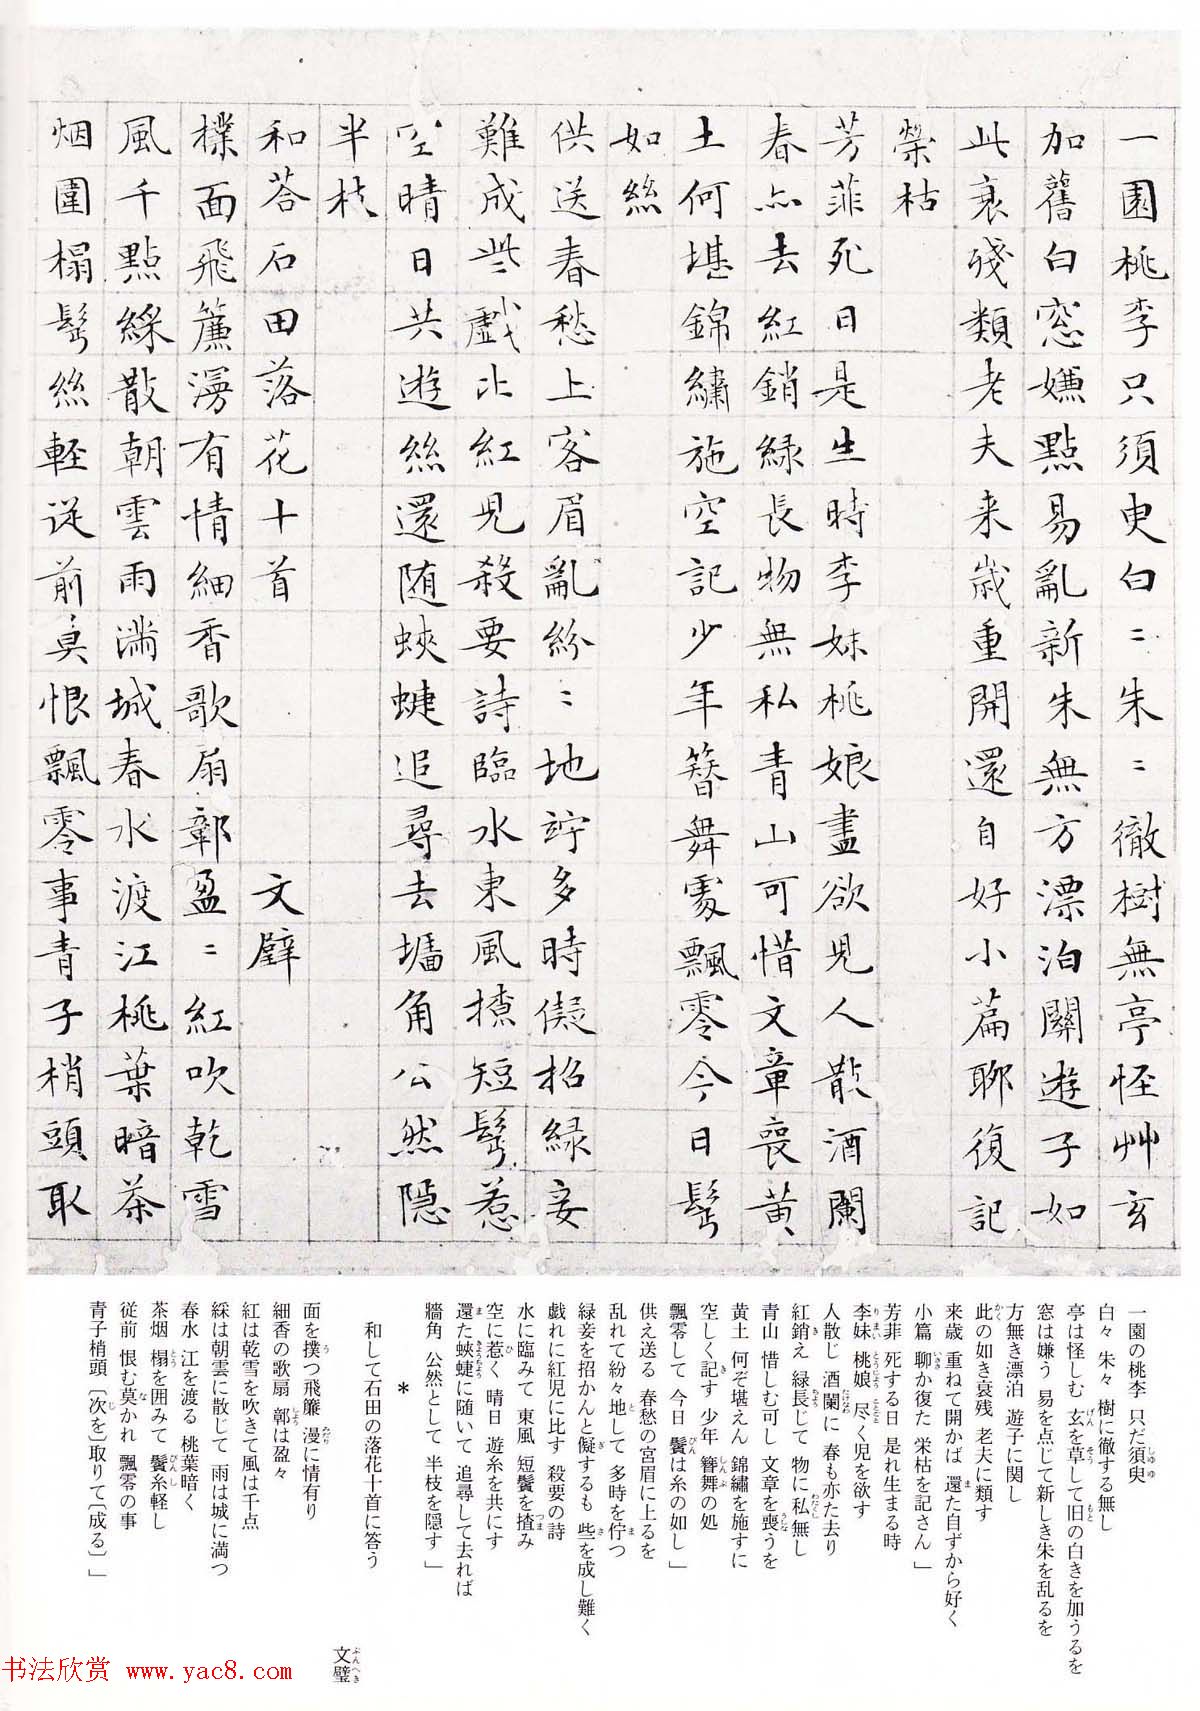 一園桃李只須臾白〻朱〻徹樹無亭怪艸玄
加舊白窓嫌點易亂新朱無方漂泊關遊子如
此衰殘類老夫来歲重開還自好小篇聊復記
榮枯
芳菲死日是生時李妹桃娘盡欲兒人散酒闌
春亦去紅銷緑長物無私青山可惜文章喪黄
土何堪錦繡施空記少年簪舞處飄零今日鬢
如絲
供送春愁上客眉亂紛〻地竚多時儗招緑妾
難成些戲比紅兒殺要詩臨水東風撩短鬢惹
空晴日共遊絲還随蛺蜨追尋去墻角公然隠
半枝
和荅石田落花十首　文壁
撲面飛簾漫有情細香歌扇鄣盈〻紅吹乾雪
風千點綵散朝雲雨満城春水渡江桃葉暗茶
烟圍榻鬢絲軽従前莫恨飄零事青子梢頭取
一園の桃李 只だ須臾
白々 朱々 樹に徹する無し
亭は怪しむ 玄を草して旧の白きを加うるを
窓は嫌う 易を点じて新しき朱を乱るを
方無き漂泊 遊子に関し
此の如き衰残 老夫に類す
来歳 重ねて開かば 還た自ずから好く
小篇 聊か復た 栄枯を記さん」
芳菲 死する日 是れ生まる時
李妹 桃娘 尽く児を欲す
人散じ 酒闌に 春も亦た去り
紅銷え 緑長じて 物に私無し
青山 惜しむ可し 文章を喪うを
黄土 何ぞ堪えん 錦繡を施すに
空しく記す 少年 簪舞の処
飄零して 今日 鬢は糸の如し」
供え送る 春愁の宮眉に上るを
乱れて紛々地として 多時を佇つ
緑妾を招かんと儗するも 些を成し難く
戯れに紅児に比す 殺要の詩
水に臨みて 東風 短鬢を揸み
空に惹く 晴日 遊糸を共にす
還た蛺蜨に随いて 追尋して去れば
牆角 公然として 半枝を隠す」
＊
和して石田の落花十首に答う
文璧
面を撲つ飛簾 漫に情有り
細香の歌扇 鄣は盈々
紅は乾雪を吹きて風は千点
綵は朝雲に散じて 雨は城に満つ
春水 江を渡る 桃葉暗く
茶烟 榻を囲みて 鬢糸軽し
従前 恨む莫かれ 飄零の事
青子梢頭〔次を〕取りて〔成る〕」
书法欣赏 www.yac8.com